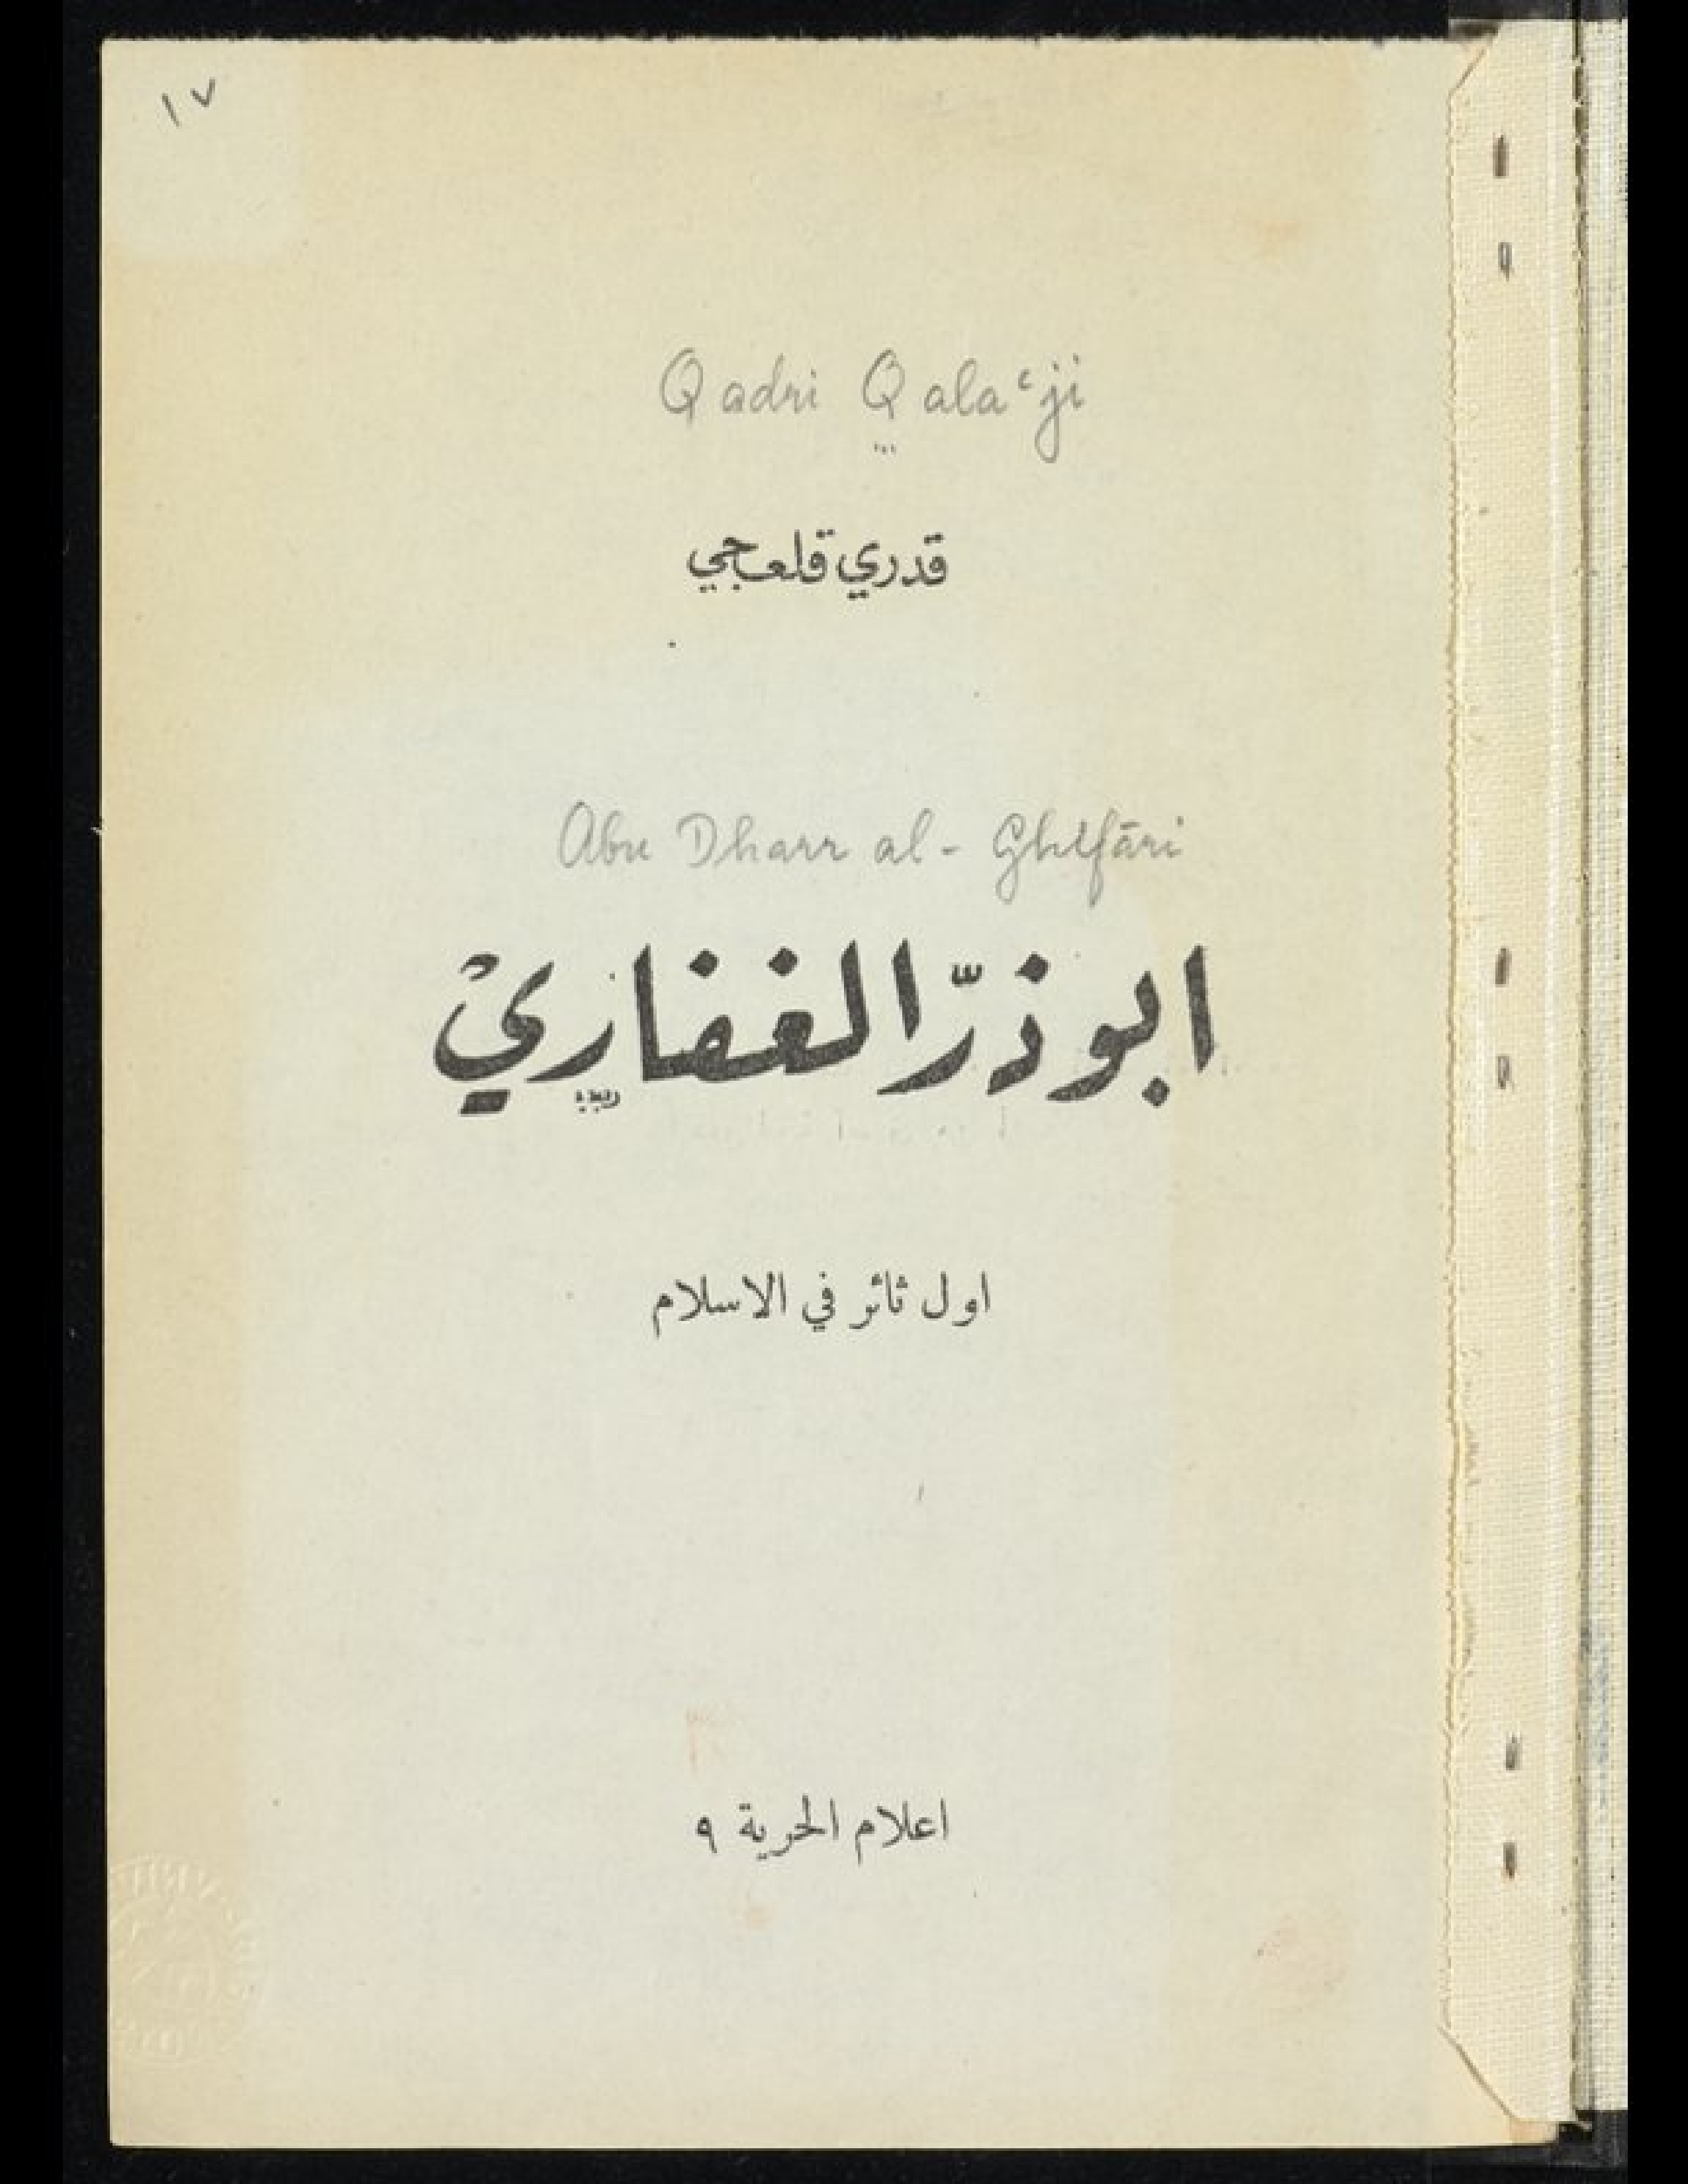 ١٧
Qadri Qalaʿji
قدري قلعجي
Abu Dharr al-Ghifāri
ابو ذرّ الغفاريْ
اول ثائر في الاسلام
اعلام الحرية ٩